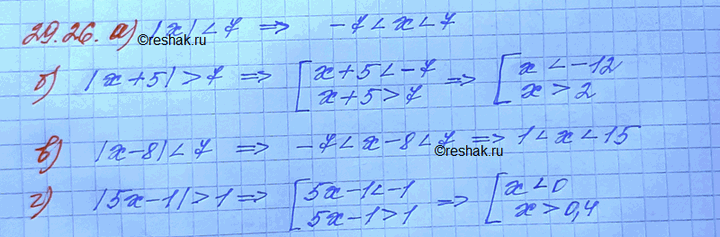 29.26. а) |x| < 7 => -7 < x < 7
©reshak.ru
б) |x+5| > 7 => [ x+5 < -7 => [ x < -12
x+5 > 7 x > 2
в) |x-8| < 7 => -7 < x-8 < 7 => 1 < x < 15
©reshak.ru
г) |5x-1| > 1 => [ 5x-1 < -1 => [ x < 0
5x-1 > 1 x > 0,4